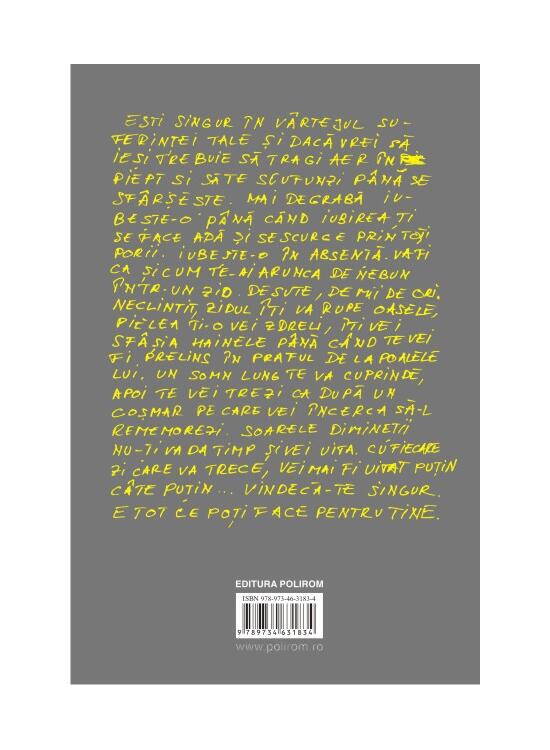 EȘTI SINGUR ÎN VÂRTEJUL SU-
FERINȚEI TALE ȘI DACĂ VREI SĂ
IEȘI TREBUIE SĂ TRAGI AER ÎN
PIEPT SI SĂTE SCUFUNZI PÂNĂ SE
SFÂRȘEȘTE. MAI DEGRABĂ IU-
BEȘTE-O PÂNĂ CÂND IUBIREA ȚI
SE FACE APĂ ȘI SE SCURGE PRIN TOȚI
PORII. IUBEȘTE-O ÎN ABSENȚĂ. VA FI
CA ȘI CUM TE-AI ARUNCA DE NEBUN
ÎNTR-UN ZID. DE SUTE, DE MII DE ORI.
NECLINTIT, ZIDUL ÎȚI VA RUPE OASELE,
PIELEA ȚI-O VEI ZDRELI, ÎȚI VEI
SFÂȘIA HAINELE PÂNĂ CÂND TE VEI
FI PRELINS ÎN PRAFUL DE LA POALELE
LUI. UN SOMN LUNG TE VA CUPRINDE,
APOI TE VEI TREZI CA DUPĂ UN
COȘMAR PE CARE VEI ÎNCERCA SĂ-L
REMEMOREZI. SOARELE DIMINEȚII
NU-ȚI VA DA TIMP ȘI VEI UITA. CU FIECARE
ZI CARE VA TRECE, VEI MAI FI UITAT PUȚIN
CÂTE PUȚIN... VINDECĂ-TE SINGUR.
E TOT CE POȚI FACE PENTRU TINE.
EDITURA POLIROM
ISBN 978-973-46-3183-4
9 789734 631834
www.polirom.ro